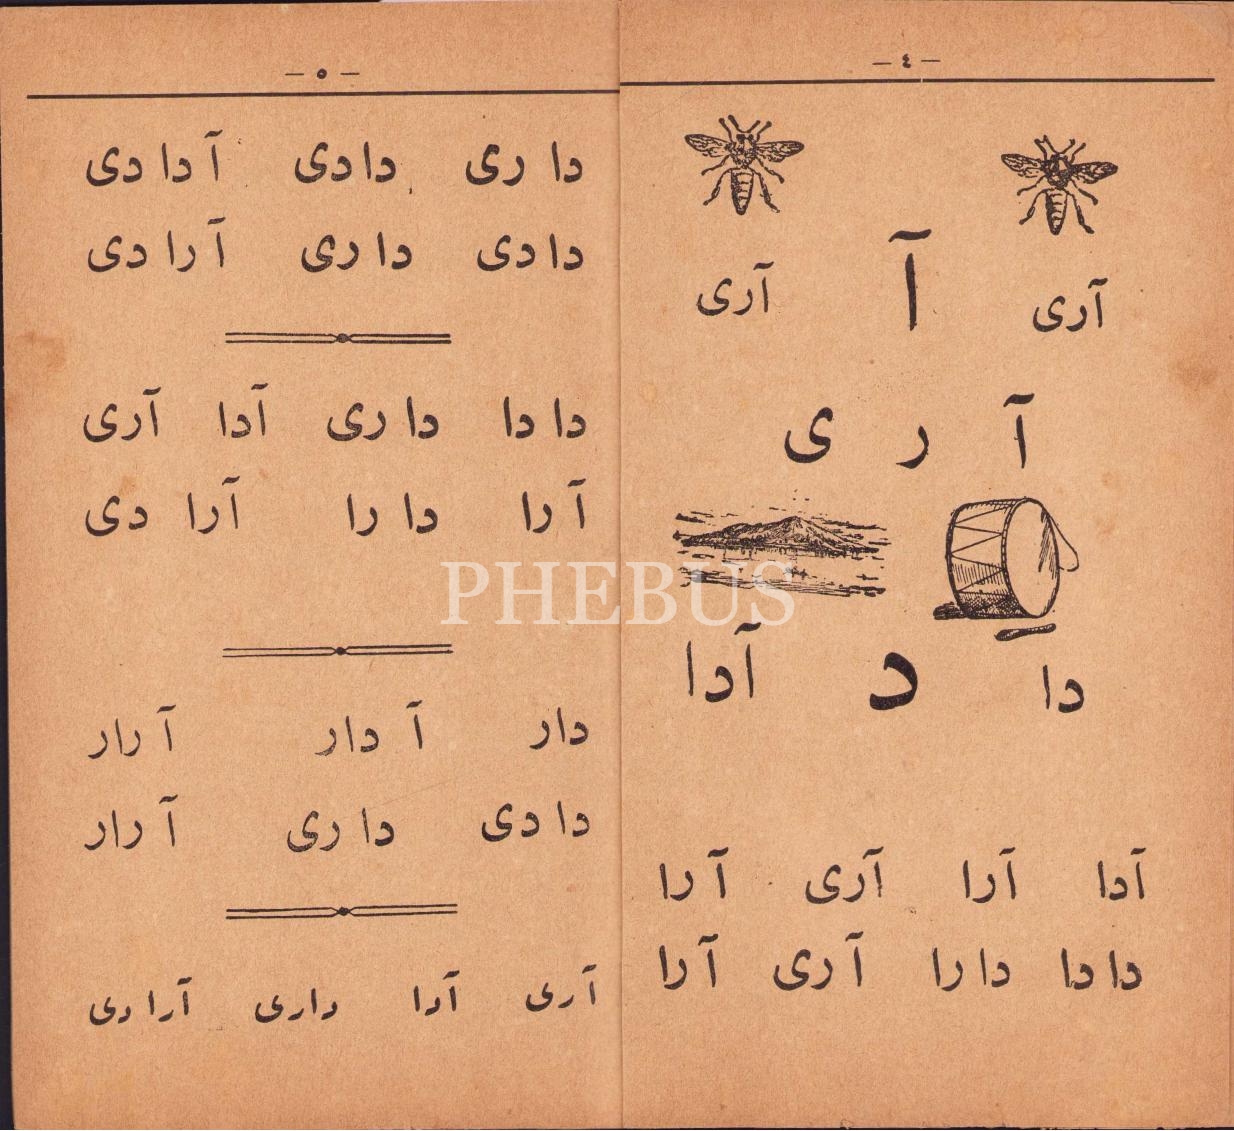 — ٤ —
آری آ آری
آ ر ی
دا د آدا
آدا آرا آری آ را
دا دا دا را آ ری آ را
— ٥ —
دا ری دا دی آ دا دی
دا دی دا ری آ را دی
دا دا دا ری آدا آری
آ را دا را آرا دی
دار آ دار آ رار
دا دی دا ری آ رار
آ ری آدا داری آرا دی
PHEBUS